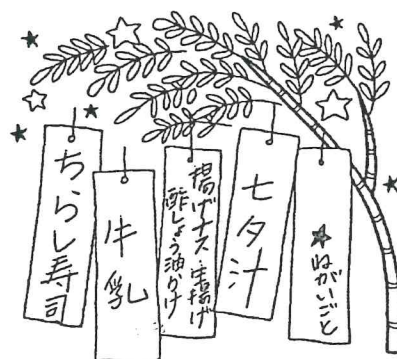 ちらし寿司
牛乳
揚げナス・生揚げ
酢しょう油かけ
七夕汁
★ねがいごと